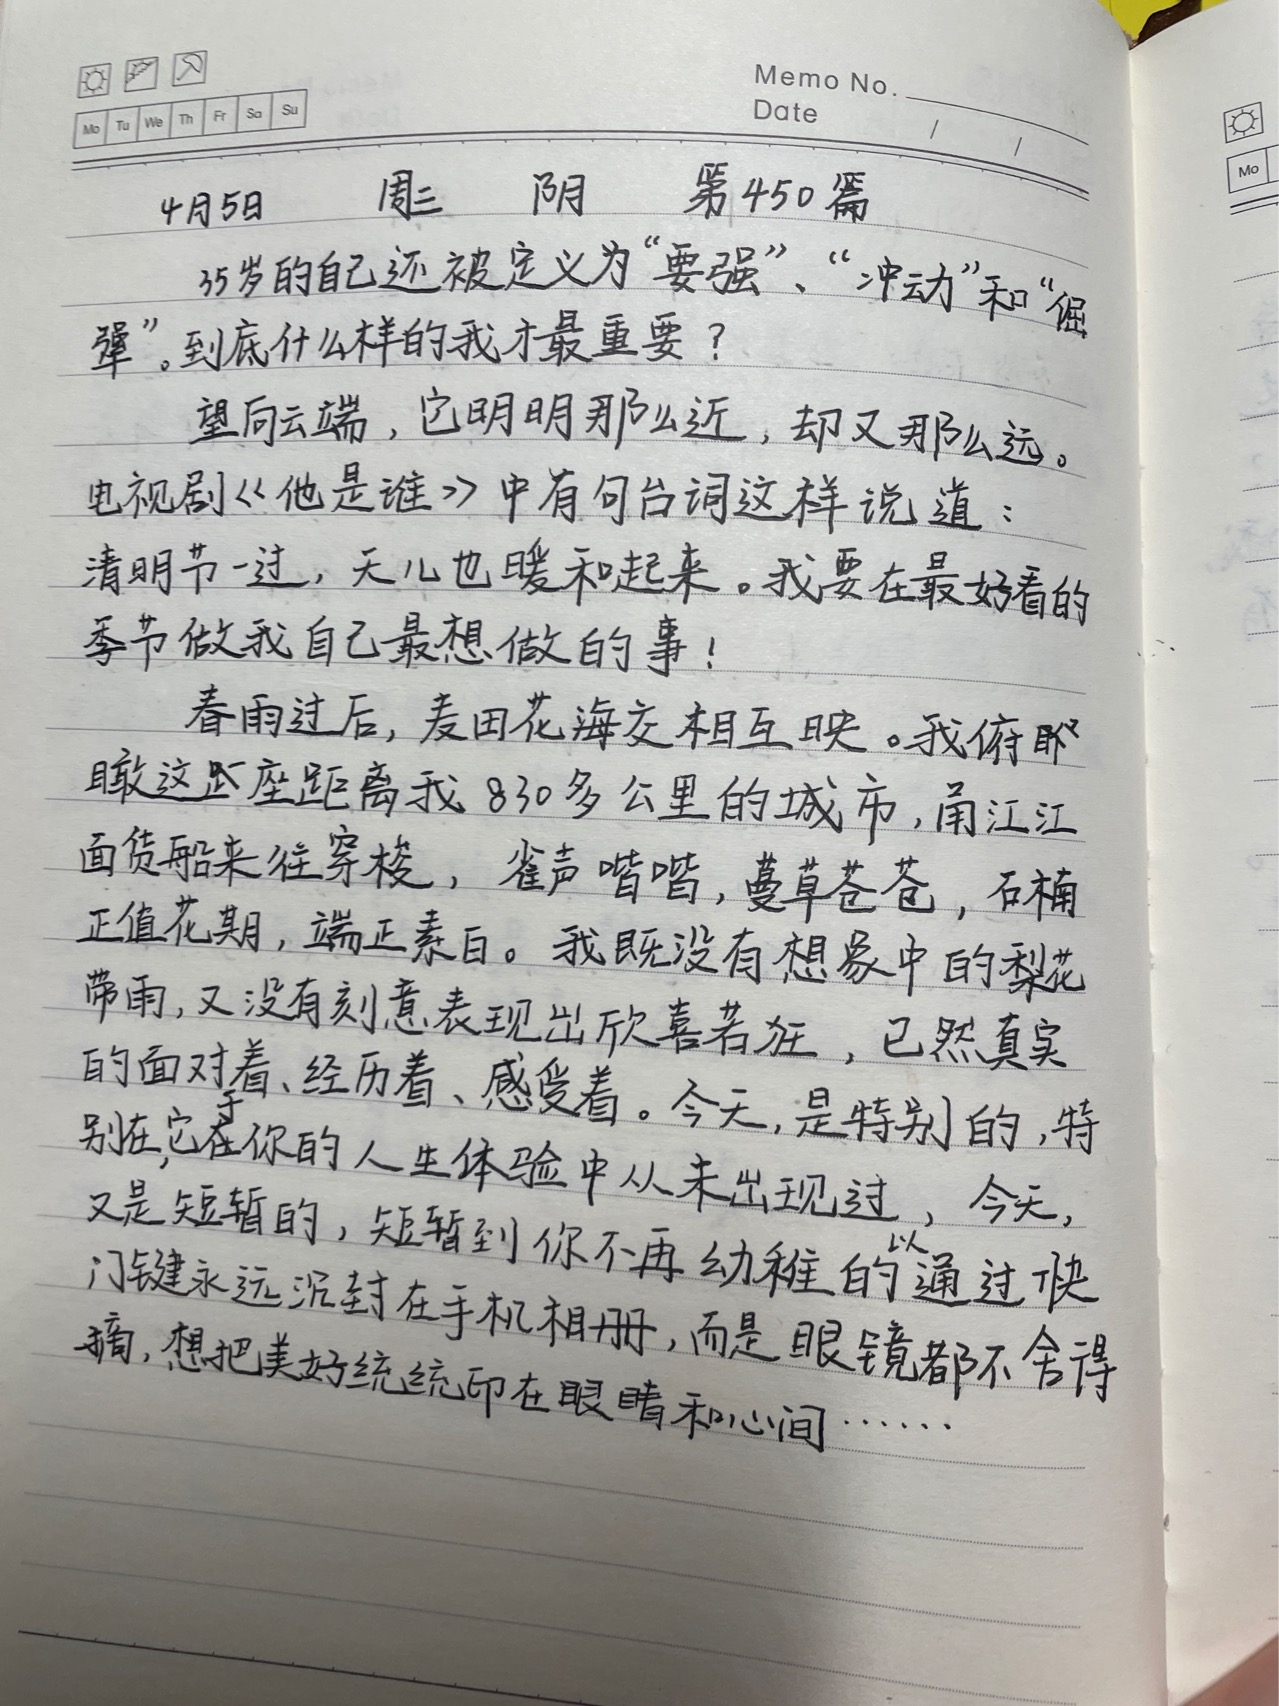 Memo No.
Date / /
Mo Tu We Th Fr Sa Su
Mo
4月5日 周三 阴 第450篇
35岁的自己还被定义为“要强”、“冲动”和“倔
犟”。到底什么样的我才最重要？
望向云端，它明明那么近，却又那么远。
电视剧《他是谁》中有句台词这样说道：
清明节一过，天儿也暖和起来。我要在最好看的
季节做我自己最想做的事！
春雨过后，麦田花海交相互映。我俯
瞰这座距离我830多公里的城市，甬江江
面货船来往穿梭，雀声喈喈，蔓草苍苍，石楠
正值花期，端正素白。我既没有想象中的梨花
带雨，又没有刻意表现出欣喜若狂，已然真实
的面对着、经历着、感受着。今天，是特别的，特
别在，它于在你的人生体验中从未出现过，今天，
又是短暂的，短暂到你不再幼稚的以通过快
门键永远沉封在手机相册，而是眼镜都不舍得
摘，想把美好统统印在眼睛和心间……